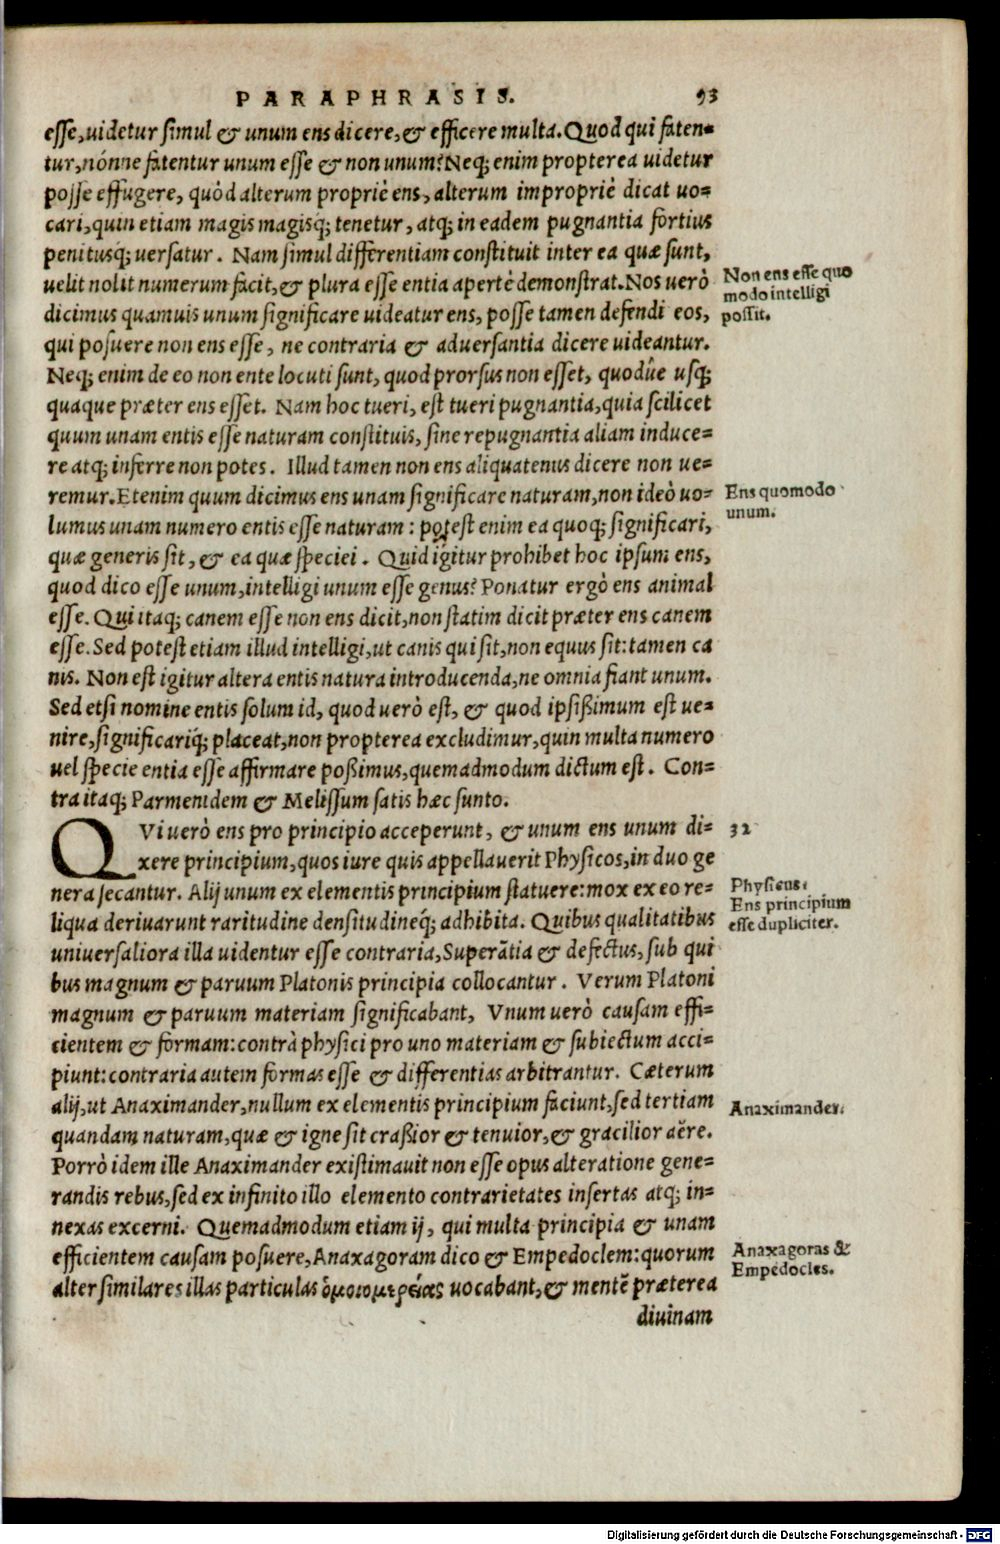 PARAPHRASIS. 93
esse, uidetur simul & unum ens dicere, & efficere multa. Quod qui faten=
tur, nónne fatentur unum esse & non unum? Neq; enim propterea uidetur
posse effugere, quòd alterum propriè ens, alterum impropriè dicat uo=
cari, quin etiam magis magisq́; tenetur, atq; in eadem pugnantia fortius
penitusq́; uersatur. Nam simul differentiam constituit inter ea quæ sunt,
uelit nolit numerum facit, & plura esse entia apertè demonstrat. Nos uerò
Non ens esse quo
modo intelligi
possit.
dicimus quamuis unum significare uideatur ens, posse tamen defendi eos,
qui posuere non ens esse, ne contraria & aduersantia dicere uideantur.
Neq; enim de eo non ente locuti sunt, quod prorsus non esset, quodûe usq;
quaque præter ens esset. Nam hoc tueri, est tueri pugnantia, quia scilicet
quum unam entis esse naturam constituis, sine repugnantia aliam induce=
re atq; inferre non potes. Illud tamen non ens aliquatenus dicere non ue=
remur. Etenim quum dicimus ens unam significare naturam, non ideò uo=
Ens quomodo
unum.
lumus unam numero entis esse naturam: potest enim ea quoq; significari,
quæ generis sit, & ea quæ speciei. Quid igitur prohibet hoc ipsum ens,
quod dico esse unum, intelligi unum esse genus? Ponatur ergò ens animal
esse. Qui itaq; canem esse non ens dicit, non statim dicit præter ens canem
esse. Sed potest etiam illud intelligi, ut canis qui sit, non equus sit: tamen ca
nis. Non est igitur altera entis natura introducenda, ne omnia fiant unum.
Sed etsi nomine entis solum id, quod uerò est, & quod ipsißimum est ue=
nire, significariq́; placeat, non propterea excludimur, quin multa numero
uel specie entia esse affirmare poßimus, quemadmodum dictum est. Con=
tra itaq; Parmenidem & Melissum satis hæc sunto.
QVi uerò ens pro principio acceperunt, & unum ens unum di=
32
xere principium, quos iure quis appellauerit Physicos, in duo ge
nera secantur. Alij unum ex elementis principium statuere: mox ex eo re=
Physicus.
Ens principium
esse dupliciter.
liqua deriuarunt raritudine densitudineq́; adhibita. Quibus qualitatibus
uniuersaliora illa uidentur esse contraria, Superãtia & defectus, sub qui
bus magnum & paruum Platonis principia collocantur. Verum Platoni
magnum & paruum materiam significabant, Vnum uerò causam effi=
cientem & formam: contrà physici pro uno materiam & subiectum acci=
piunt: contraria autem formas esse & differentias arbitrantur. Cæterum
alij, ut Anaximander, nullum ex elementis principium faciunt, sed tertiam
Anaximander.
quandam naturam, quæ & igne sit craßior & tenuior, & gracilior aëre.
Porrò idem ille Anaximander existimauit non esse opus alteratione gene=
randis rebus, sed ex infinito illo elemento contrarietates insertas atq; in=
nexas excerni. Quemadmodum etiam ij, qui multa principia & unam
efficientem causam posuere, Anaxagoram dico & Empedoclem: quorum
Anaxagoras &
Empedocles.
alter similares illas particulas ὁμοιομερείας uocabant, & mentẽ præterea
diuinam
Digitalisierung gefördert durch die Deutsche Forschungsgemeinschaft - DFG